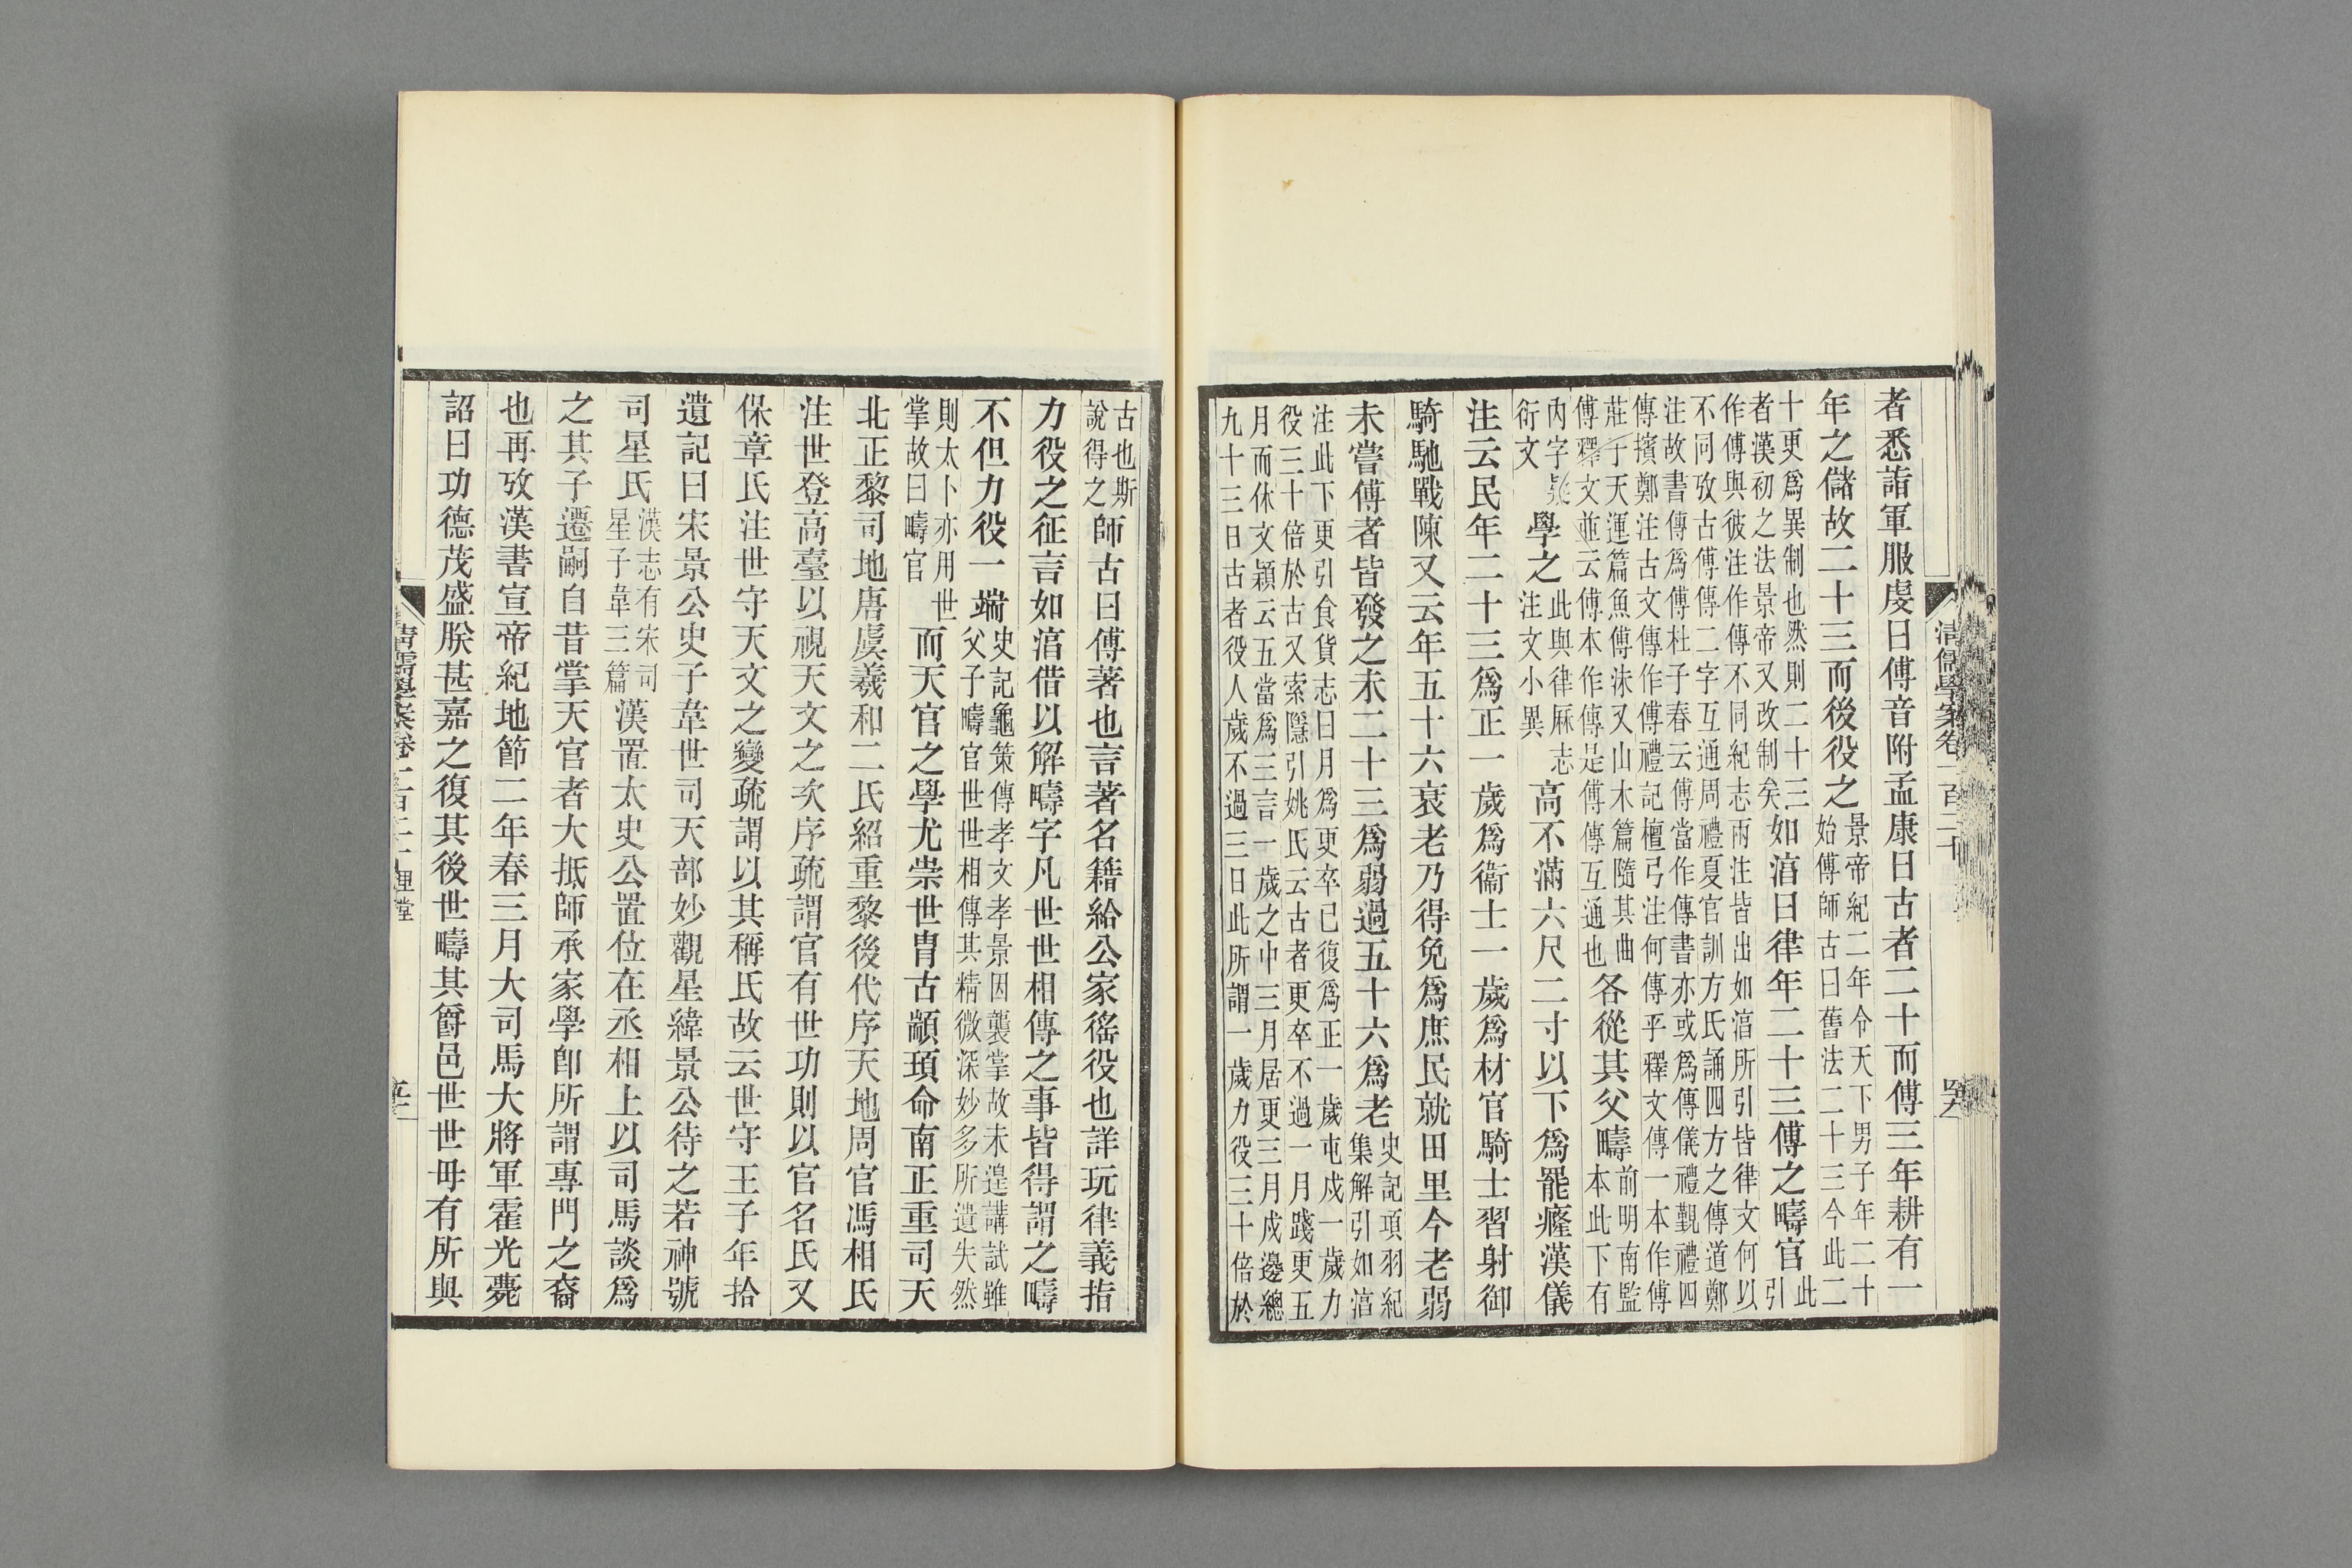 者悉詣軍服虔曰傅音附孟康曰古者二十而傅三年耕有一
年之儲故二十三而後役之景帝紀二年令天下男子年二十始傅師古曰舊法二十三今此二
十更爲異制也然則二十三
者漢初之法景帝又改制矣如淳曰律年二十三傅之疇官此引
作傅與彼注作傳不同紀志兩注皆出如淳所引皆律文何以
不同攷古傅傳二字互通周禮夏官訓方氏誦四方之傳道鄭
注故書傳爲傅杜子春云傅當作傳書亦或爲傳儀禮覲禮四
傳擯鄭注古文傳作傅禮記檀弓注何傳乎釋文傳一本作傅
莊子天運篇魚傅沫又山木篇隨其曲
傅釋文並云傅本作傳是傅傳互通也各從其父疇前明南監本此下有
內字疑衍文學之此與律厤志注文小異高不滿六尺二寸以下爲罷癃漢儀
注云民年二十三爲正一歲爲衞士一歲爲材官騎士習射御
騎馳戰陳又云年五十六衰老乃得免爲庶民就田里今老弱
未嘗傅者皆發之未二十三爲弱過五十六爲老史記項羽紀集解引如淳
注此下更引食貨志曰月爲更卒已復爲正一歲屯戍一歲力
役三十倍於古又索隱引姚氏云古者更卒不過一月踐更五
月而休文穎云五當爲三言一歲之中三月居更三月戍邊總
九十三日古者役人歲不過三日此所謂一歲力役三十倍於
清儒學案卷一百二十
古也斯說得之師古曰傅著也言著名籍給公家徭役也詳玩律義指
力役之征言如淳借以解疇字凡世世相傳之事皆得謂之疇
不但力役一端史記龜策傳孝文孝景因襲掌故未遑講試雖父子疇官世世相傳其精微深妙多所遺失然
則太卜亦用世掌故曰疇官而天官之學尤崇世冑古顓頊命南正重司天
北正黎司地唐虞羲和二氏紹重黎後代序天地周官馮相氏
注世登高臺以視天文之次序疏謂官有世功則以官名氏又
保章氏注世守天文之變疏謂以其稱氏故云世守王子年拾
遺記曰宋景公史子韋世司天部妙觀星緯景公待之若神號
司星氏漢志有宋司星子韋三篇漢置太史公置位在丞相上以司馬談爲
之其子遷嗣自昔掌天官者大抵師承家學卽所謂專門之裔
也再攷漢書宣帝紀地節二年春三月大司馬大將軍霍光薨
詔曰功德茂盛朕甚嘉之復其後世疇其爵邑世世毋有所與
清儒學案卷一百二十 理堂